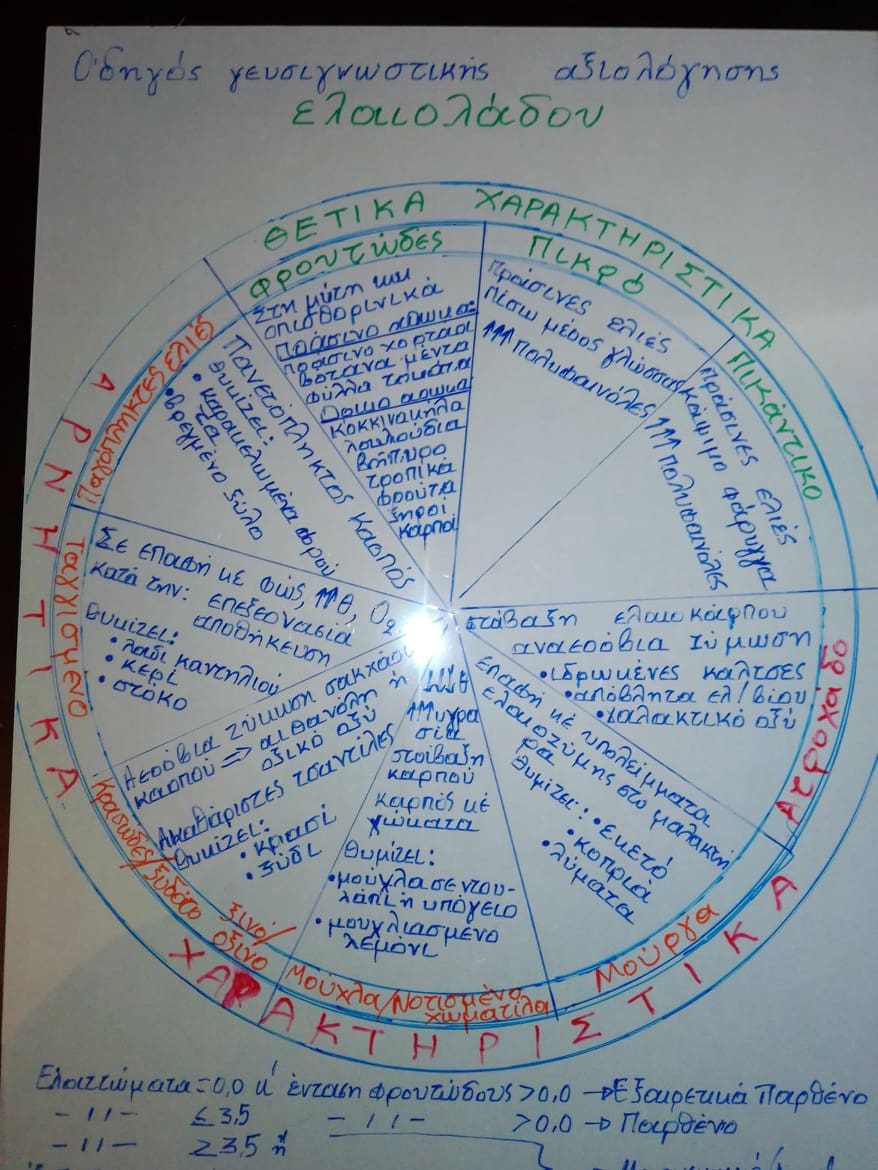 Οδηγός γευσιγνωστικής αξιολόγησης
ελαιολάδου
ΘΕΤΙΚΑ ΧΑΡΑΚΤΗΡΙΣΤΙΚΑ
ΦΡΟΥΤΩΔΕΣ
Στη μύτη και
οπισθορινικά
Πράσινο άρωμα:
πράσινο χορτάρι
βότανα μέντα
φύλλα τομάτα
Ώριμο άρωμα
κόκκινα μήλα
λουλούδια
βούτυρο
τροπικά
φρούτα
ξηροί
καρποί
ΠΙΚΡΟ
Πράσινες ελιές
πίσω μέρος γλώσσας
↑↑↑ πολυφαινόλες
ΠΙΚΑΝΤΙΚΟ
Πράσινες ελιές
κάψιμο φάρυγγα
↑↑↑ πολυφαινόλες
ΑΤΡΟΧΑΔΟ
στοίβαξη ελαιοκάρπου
αναερόβια ζύμωση
• ιδρωμένες κάλτσες
• απόβλητα ελ/βίου
• γαλακτικό οξύ
Μούργα
Επαφή με υπολείμματα
ελαιοζύμης στο μαλακτή
ρα
Θυμίζει: • εμετό
• κοπριά
• λύματα
Μούχλα/Νοτισμένο
χωματίλα
↓↓↓θ
↑↑↑υγρα
σία
στοίβαξη
καρπού
καρπός με
χώματα
Θυμίζει:
• μούχλα σε ντου-
λάπι ή υπόγειο
• μουχλιασμένο
λεμόνι
Κρασώδες/Ξυδάτο
ξινό/
όξινο
Αερόβια ζύμωση σακχάρων
καρπού => αιθανόλη ή
οξικό οξύ
Ακαθάριστες τσαντίλες
Θυμίζει:
• κρασί
• ξύδι
Ταγγισμένο
Σε επαφή με φώς, ↑↑θ, O₂
κατά την: επεξεργασία
αποθήκευση
Θυμίζει:
• λάδι καντηλιού
• κερί
• στόκο
Παγόπληκτες ελιές
Παγετόπληκτος καρπός
Θυμίζει:
• καραμελωμένα φρού
τα
• βρεγμένο ξύλο
ΑΡΝΗΤΙΚΑ
ΧΑΡΑΚΤΗΡΙΣΤΙΚΑ
Ελαττώματα=0,0 κ' ένταση φρουτώδους >0,0 → Εξαιρετικά Παρθένο
-〃- ≤3,5 -〃- >0,0 → Παρθένο
-〃- ≥3,5 ή